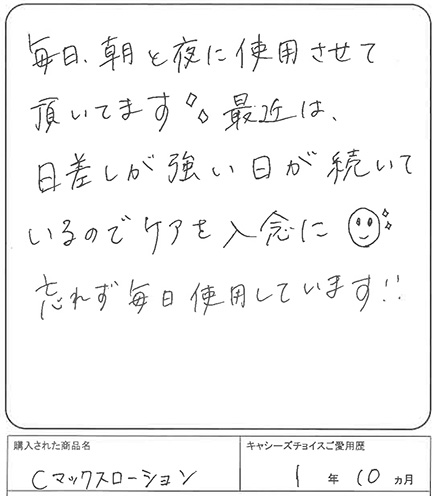 毎日、朝と夜に使用させて
頂いてます 最近は、
日差しが強い日が続いて
いるのでケアを入念に
忘れず毎日使用しています!!
購入された商品名
キャシーズチョイスご愛用歴
Cマックスローション
1年10ヵ月